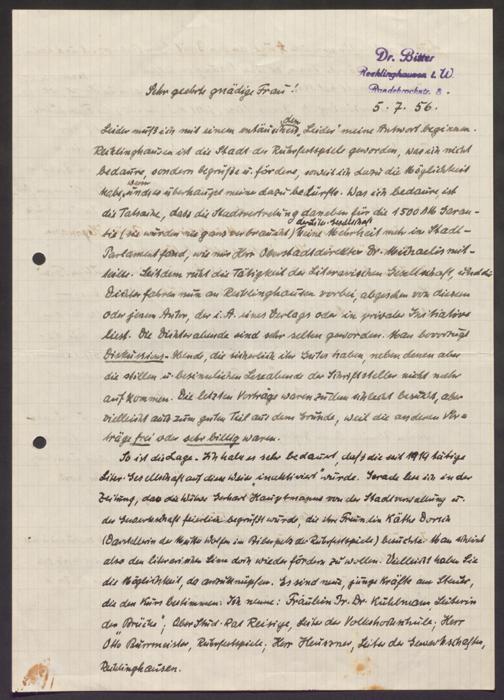 Dr. Bitter
Recklinghausen i. W.
Sehr geehrte gnädige Frau!
5. 7. 56.
den
Leider muß ich mit einem enttäuschenden „Leider" meine Antwort beginnen.
Recklinghausen ist die Stadt der Ruhrfestspiele geworden, was ich nicht
bedaure, sondern begrüße u. fördere, soweit ich dazu die Möglichkeit
habe, wenn es überhaupt meiner dazu bedürfte. Was ich bedaure ist
die Tatsache, dass die Stadtvertretung daneben für die 1500 DM Garan-
der Liter. Gesellschaft
tie (sie würden nie ganz verbraucht) keine Mehrheit mehr im Stadt-
Parlament fand, wie mir Herr Oberstadtdirektor Dr. Michaelis mit-
teilte. Seitdem ruht die Tätigkeit der Literarischen Gesellschaft, und die
Dichter fahren nun an Recklinghausen vorbei, abgesehen von diesem
oder jenem Autor, der i. A. eines Verlags oder in privater Initiative
liest. Die Dichterabende sind sehr selten geworden. Man bevorzugt
Diskussions-Abende, die sicherlich ihr Gutes haben, neben denen aber
die stillen u. besinnlichen Leseabende der Schriftsteller nicht mehr
aufkommen. Die letzten Vorträge waren zudem schlecht besucht, aber
vielleicht auch zum guten Teil aus dem Grunde, weil die anderen Vor-
träge frei oder sehr billig waren.
So ist die Lage. Ich habe es sehr bedauert, daß die seit 1914 tätige
Liter. Gesellschaft auf diese Weise „inaktiviert" wurde. Gerade lese ich in der
Zeitung, dass die Witwe Gerhart Hauptmanns von der Stadtverwaltung u.
der Gewerkschaft feierlich begrüßt wurde, die ihre Freundin Käthe Dorsch
(Darstellerin der Mutter Wolfen im Biberpelz der Ruhrfestspiele) besuchte. Man scheint
also den literarischen Sinn doch wieder fördern zu wollen. Vielleicht haben Sie
die Möglichkeit, da anzuknüpfen. Es sind neue, junge Kräfte am Steuer,
die den Kurs bestimmen: Ich nenne: Fräulein Dr. Kühlmann, Leiterin
der „Brücke"; Ober Stud.-Rat Reisige, Leiter der Volkshochschule; Herr
Otto Burrmeister, Ruhrfestspiele; Herr Heusner, Leiter der Gewerkschaften,
Recklinghausen.